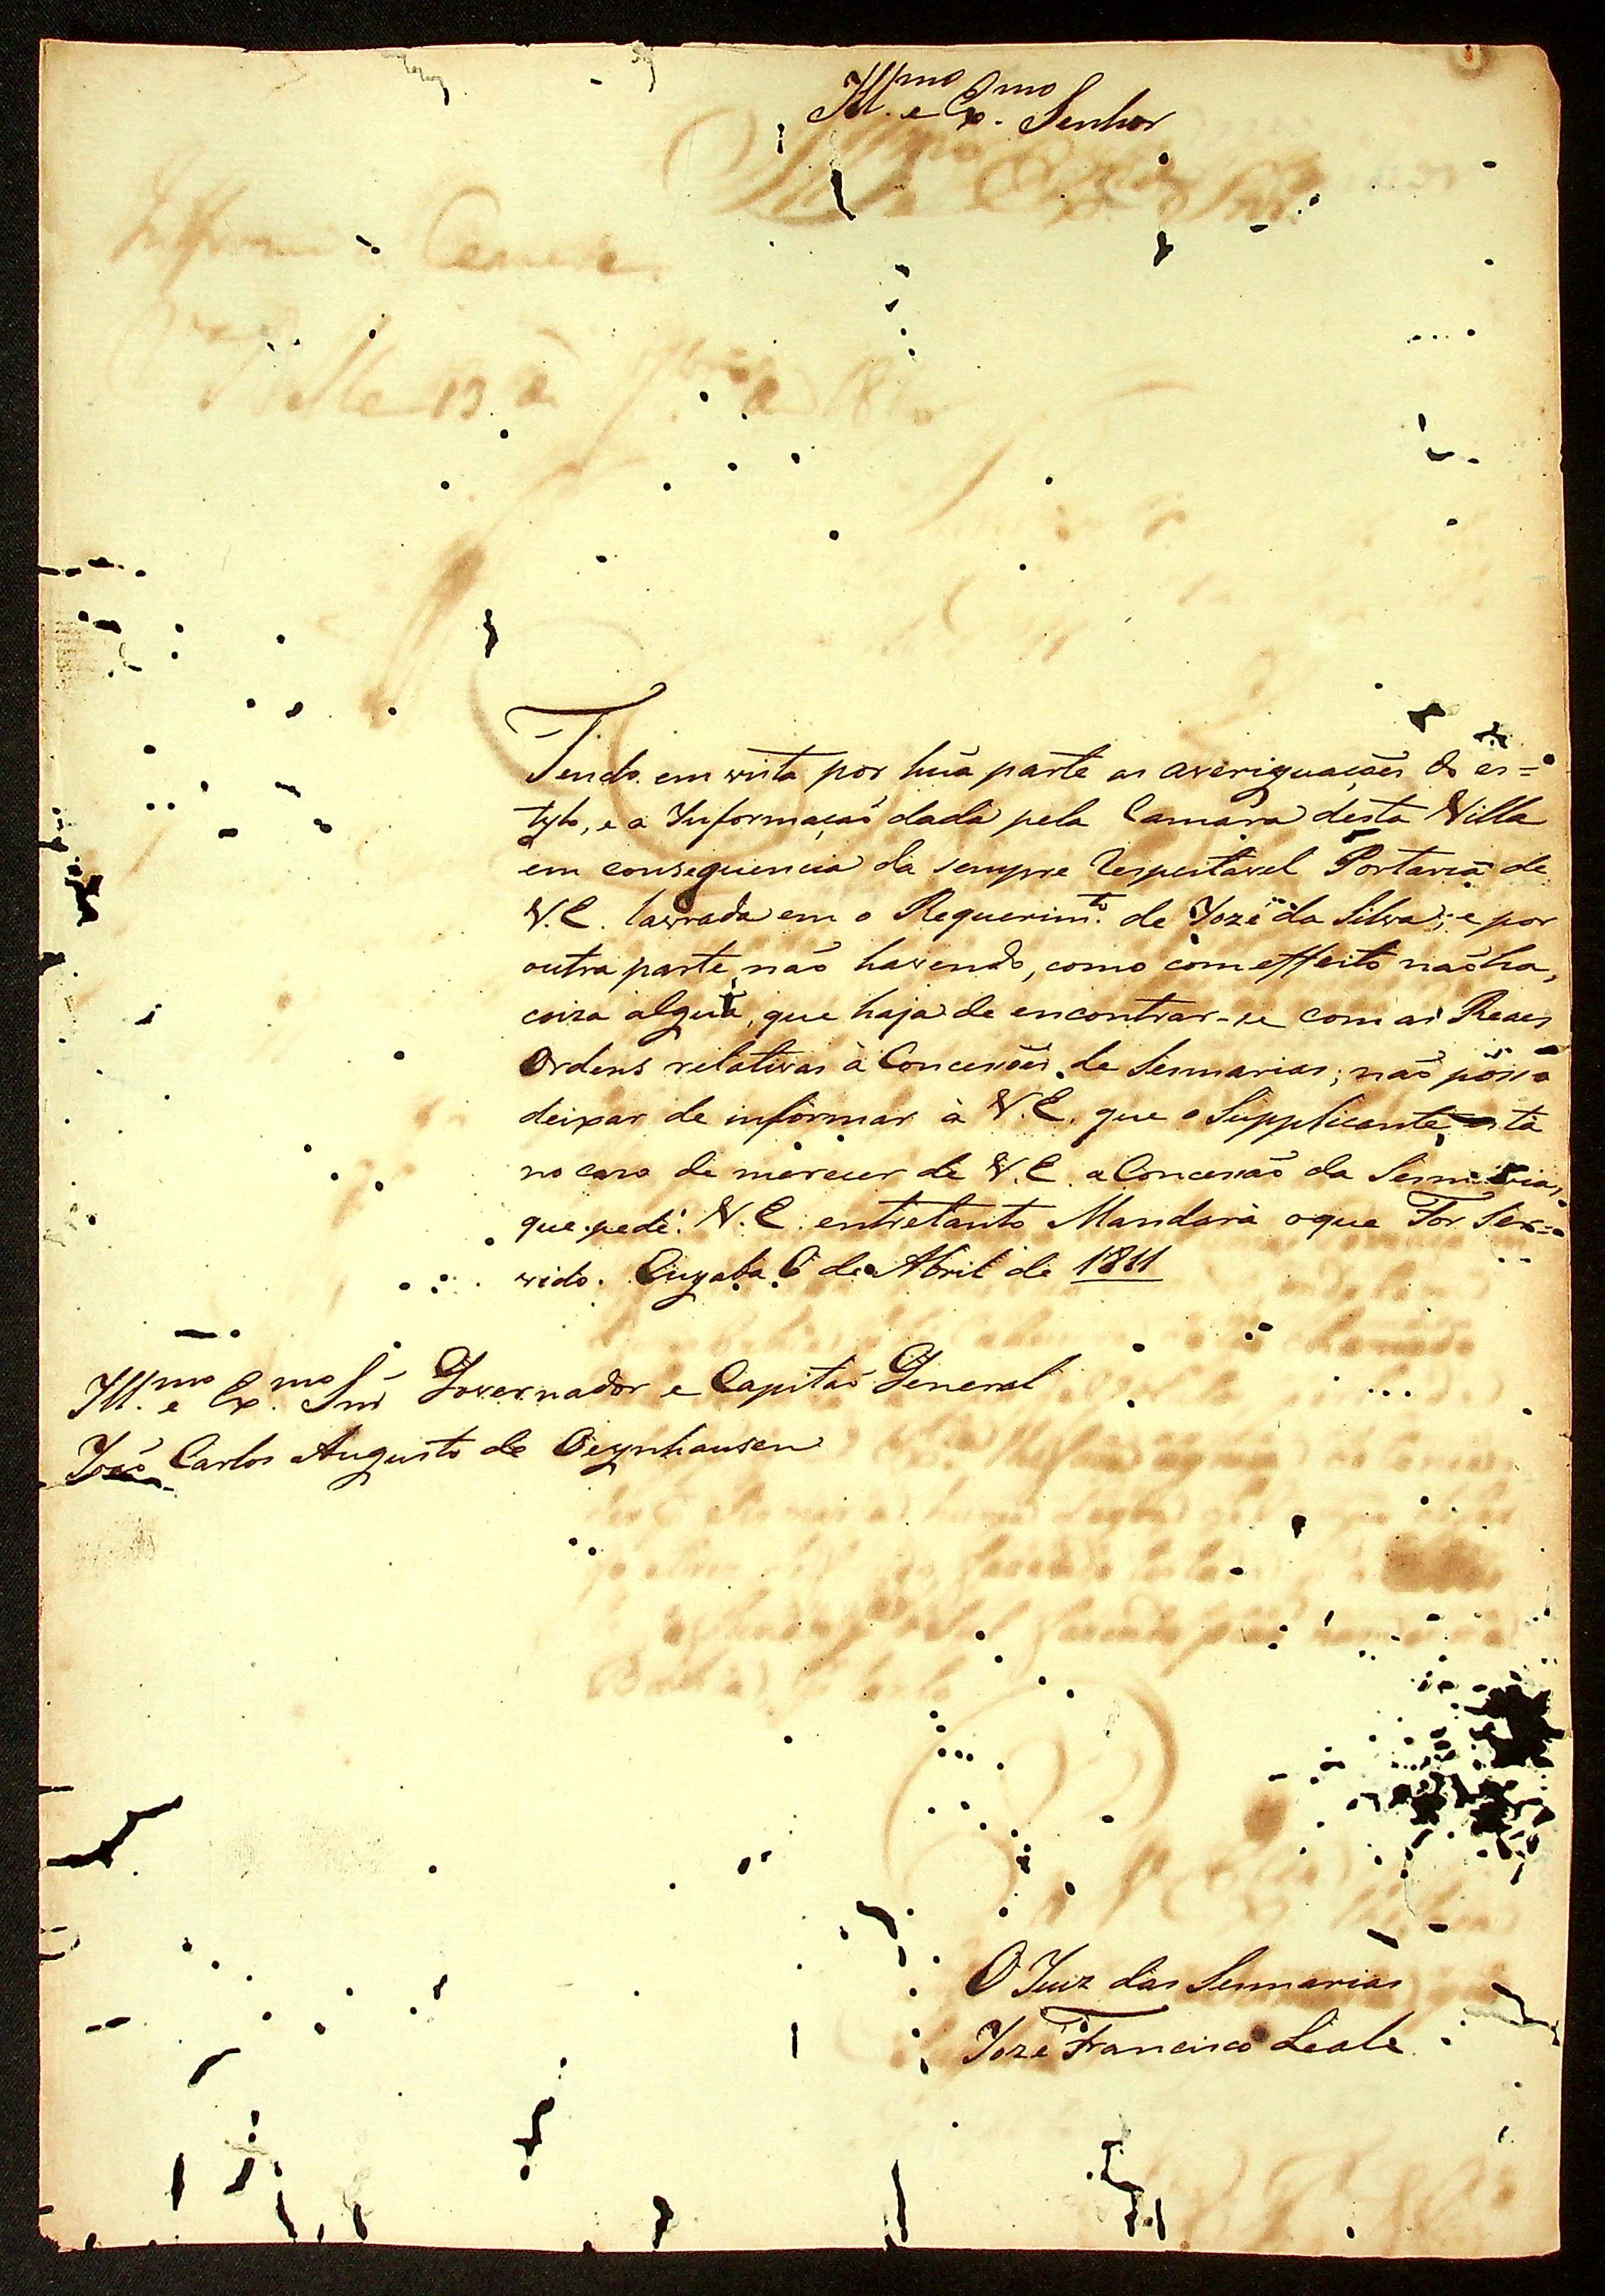 Ill.mo e Ex.mo Senhor
Tendo em vista por hũa parte as averiguaçoẽs do es=
tylo, e a Informaçaõ dada pela Camara desta Villa
em consequencia da sempre Respeitavel Portaria de
V. E. lavrada em o Requerim.to de Jozé da Silva; e por
outra parte, naõ havendo, como com effeito naõ ha,
coiza algũa, que haja de encontrar-se com as Reaes
Ordens relativas à Concessoẽs de Sesmarias; naõ posso
deixar de informar à V. E. que o Supplicante está
no caso de merecer de V. E. a Concessaõ da Sesmaria,
que pede. V. E. entretanto Mandará o que For Ser=
vido. Cuyabá 6 de Abril de 1811
Ill.mo e Ex.mo Snr Governador e Capitaõ General
Joaõ Carlos Augusto de Oeynhausen
O Juiz das Sesmarias
Jozé Francisco Leale